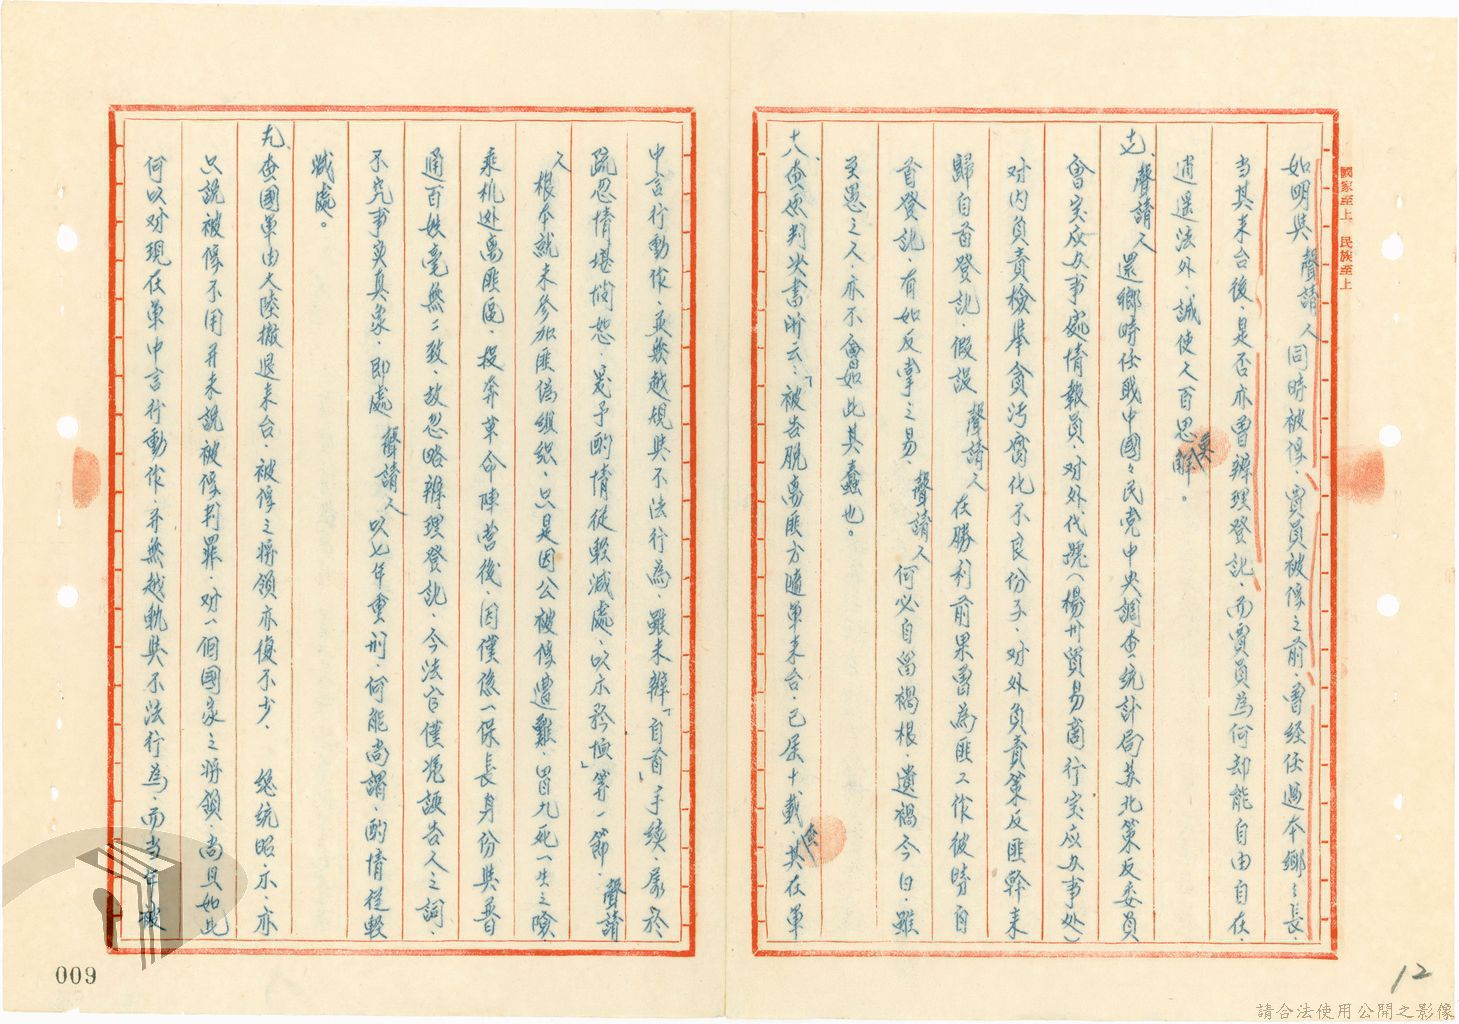 國家至上 民族至上
如明與聲請人同時被俘、賈員被俘之前、曾經任過本鄉鄉長、
當其來台後、是否亦曾辦理登記、而賈員為何却能自由自在、
逍遙法外、誠使人百思莫解。
十七、聲請人還鄉時任職中國々民党中央調查統計局苏北策反委員
會宝应办事處情報員、对外代號（楊州貿易商行宝应办事处）
对内負責檢舉貪污腐化不良份子、对外負責策反匪幹来
歸自首登記、假設聲請人在勝利前果曾為匪工作彼時自
首登記、有如反掌之易、聲請人何必自留禍根、遺禍今日、雖
至愚之人、亦不會如此其蠢也。
十八、查原判决書所云、「被告脫离匪方隨軍来台、已屆十載、其在軍
中言行動作、並無越規與不法行為、雖未辦「自首」手續、屬於
疏忽情堪憫恕、爰予酌情從輕減處、以示矜恤」等一節、聲請
人根本就未參加匪偽組织、只是因公被俘遭難、冒九死一生之險、
乘机处离匪區、投奔革命陣营後、因僅係一保長身份與普
通百姓毫無二致、故忽略辦理登記、今法官僅凭誣告人之詞、
不究事实真象、即處聲請人以七年重刑、何能尚謂、酌情從輕
减處。
九、查國軍由大陸撤退来台、被俘之將領亦復不少、 總統昭示、亦
只說被俘不用、并未說被俘判罪、对一個國家之將領、尚且如此
何以对現在軍中言行動作、并無越軌與不法行為、而当年被
009
12
請合法使用公開之影像